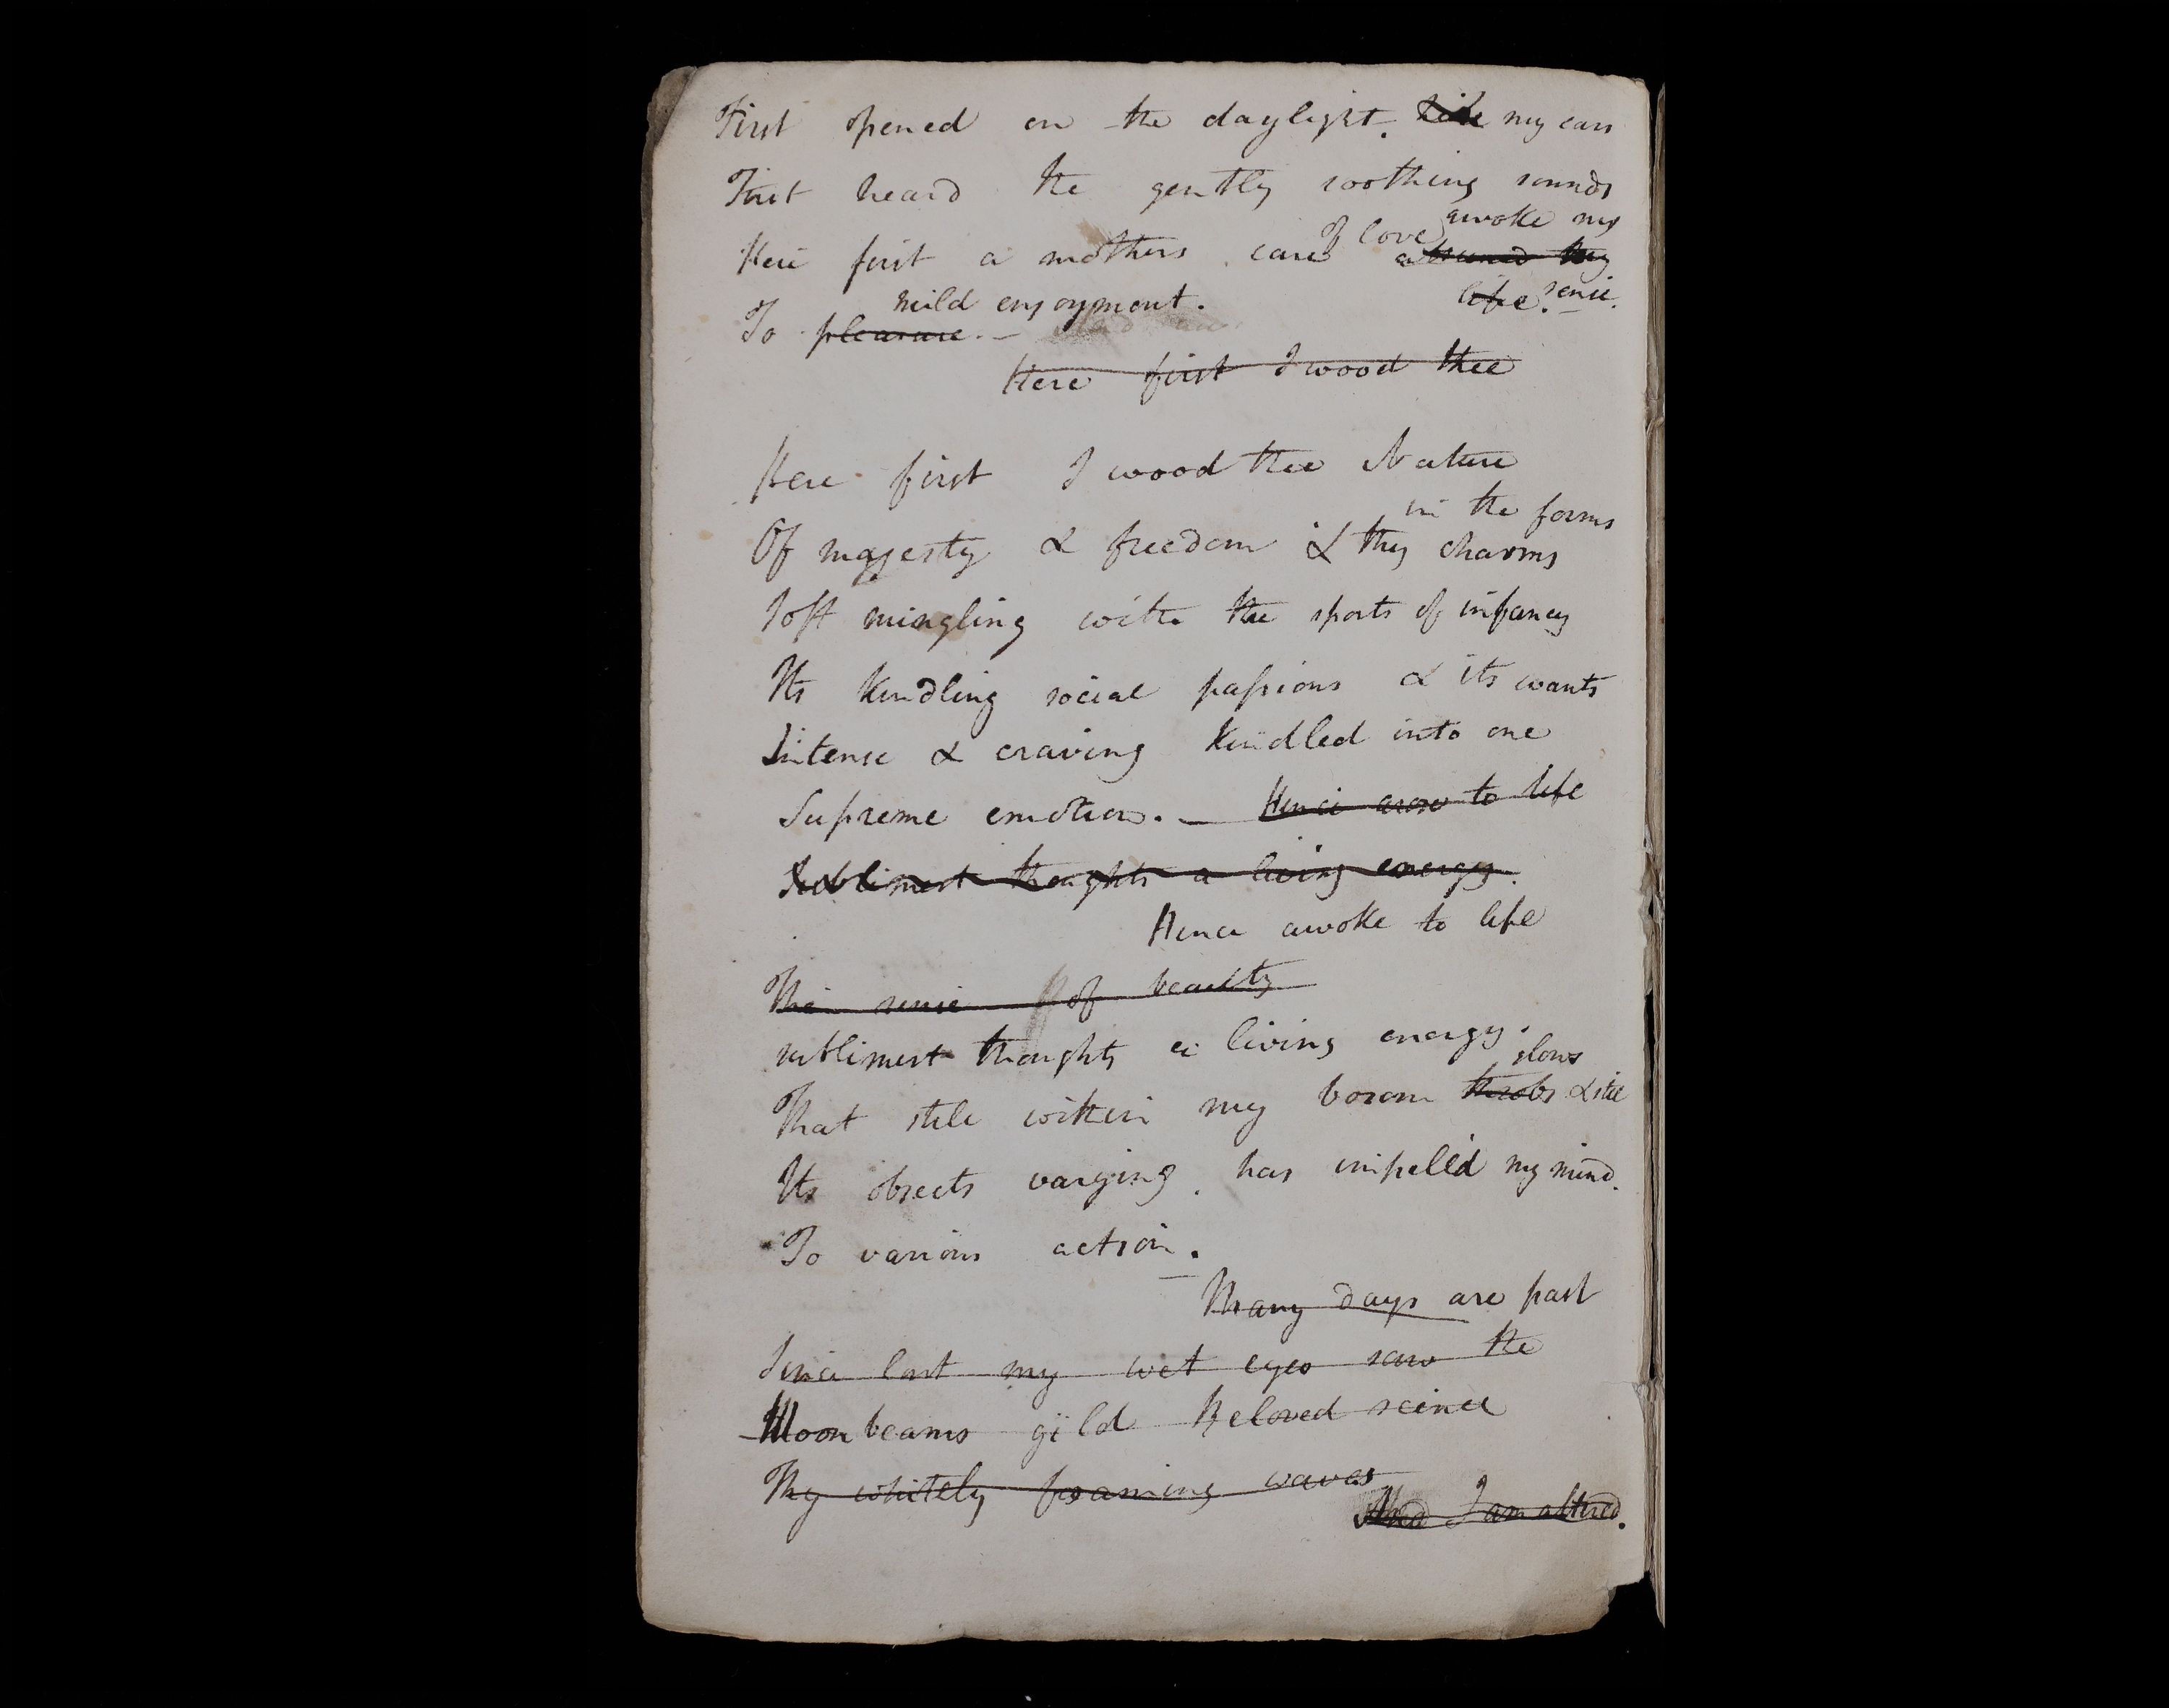 First opened on the daylight. my ears
First heard the gently soothing sounds
of love awoke my
Here first a mothers care
mild enjoyment. life. sense.
To pleasure. —
Here first I wood thee
Here first I wood thee Nature
in the forms
Of majesty & freedom & thy charms
Soft mingling with the sports of infancy
Its kindling social passions & its wants
Intense & craving kindled into one
Supreme emotion. — Hence arose to life
Sublimest thoughts a living energy.
Hence awoke to life
The sense of beauty
sublimest thoughts a living energy.
glows
That still within my bosom throbs & still
Its objects varying. has impelld my mind.
To various action.
Many days are past
Since last my wet eyes saw the
Moonbeams gild Beloved scenes
Thy whitely foaming waves
I am altered.